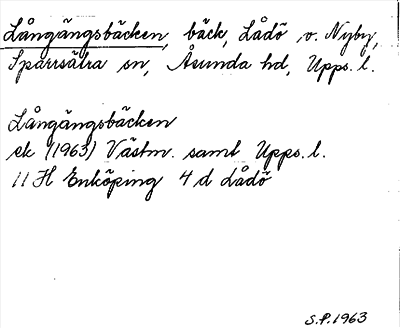 Långängsbäcken, bäck, Lådö o. Nyby,
Sparrsätra sn, Åsunda hd, Upps. l.
Långängsbäcken
ek (1963) Västm. samt Upps. l.
11 H Enköping 4 d Lådö
S.P. 1963